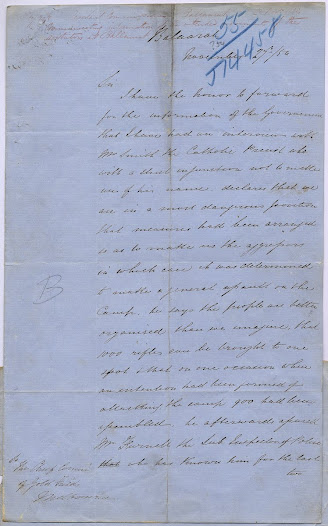 Ballaarat
55
J14458
November 27th/54
Sir
I have the honor to forward
for the information of the Government
that I have had an interview with
Mr Smith the Catholic Priest who
with a strict injunction not to make
use of his name declares that we
are in a most dangerous position
that measures had been arranged
so as to make us the aggressors
in which case it was determined
to make a general assault on the
Camp. he says the people are better
organised than we imagine, that
1000 rifles can be brought to one
spot & that on one occasion when
an intention had been formed of
attacking the camp 900 had been
assembled he afterwards
Mr Furnell the Sub Inspector of Police
that who has known him for the last
two
B
To
The Chief Commr
of Gold Fields
Melbourne